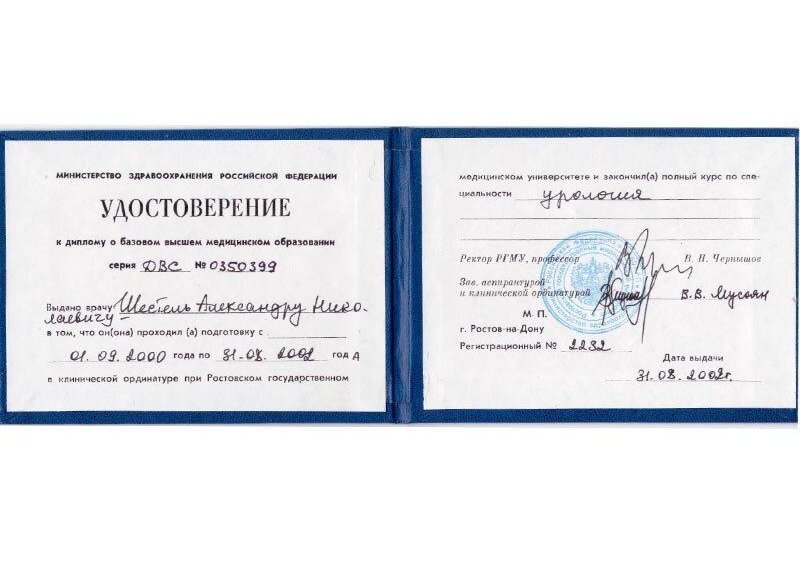 МИНИСТЕРСТВО ЗДРАВООХРАНЕНИЯ РОССИЙСКОЙ ФЕДЕРАЦИИ
УДОСТОВЕРЕНИЕ
к диплому о базовом высшем медицинском образовании
серия ДВС № 0350399
Выдано врачу Шестель Александру Нико-
лаевичу
в том, что он(она) проходил (а) подготовку с
01.09.2000 года по 31.08.2002 год а
в клинической ординатуре при Ростовском государственном
медицинском университете и закончил(а) полный курс по спе-
циальности урология
Ректор РГМУ, профессор В. Н. Чернышов
Зав. аспирантурой
и клинической ординатурой В.В. Мусоян
М П.
г. Ростов-на-Дону
Регистрационный № 2232
Дата выдачи
31.08.2002г.